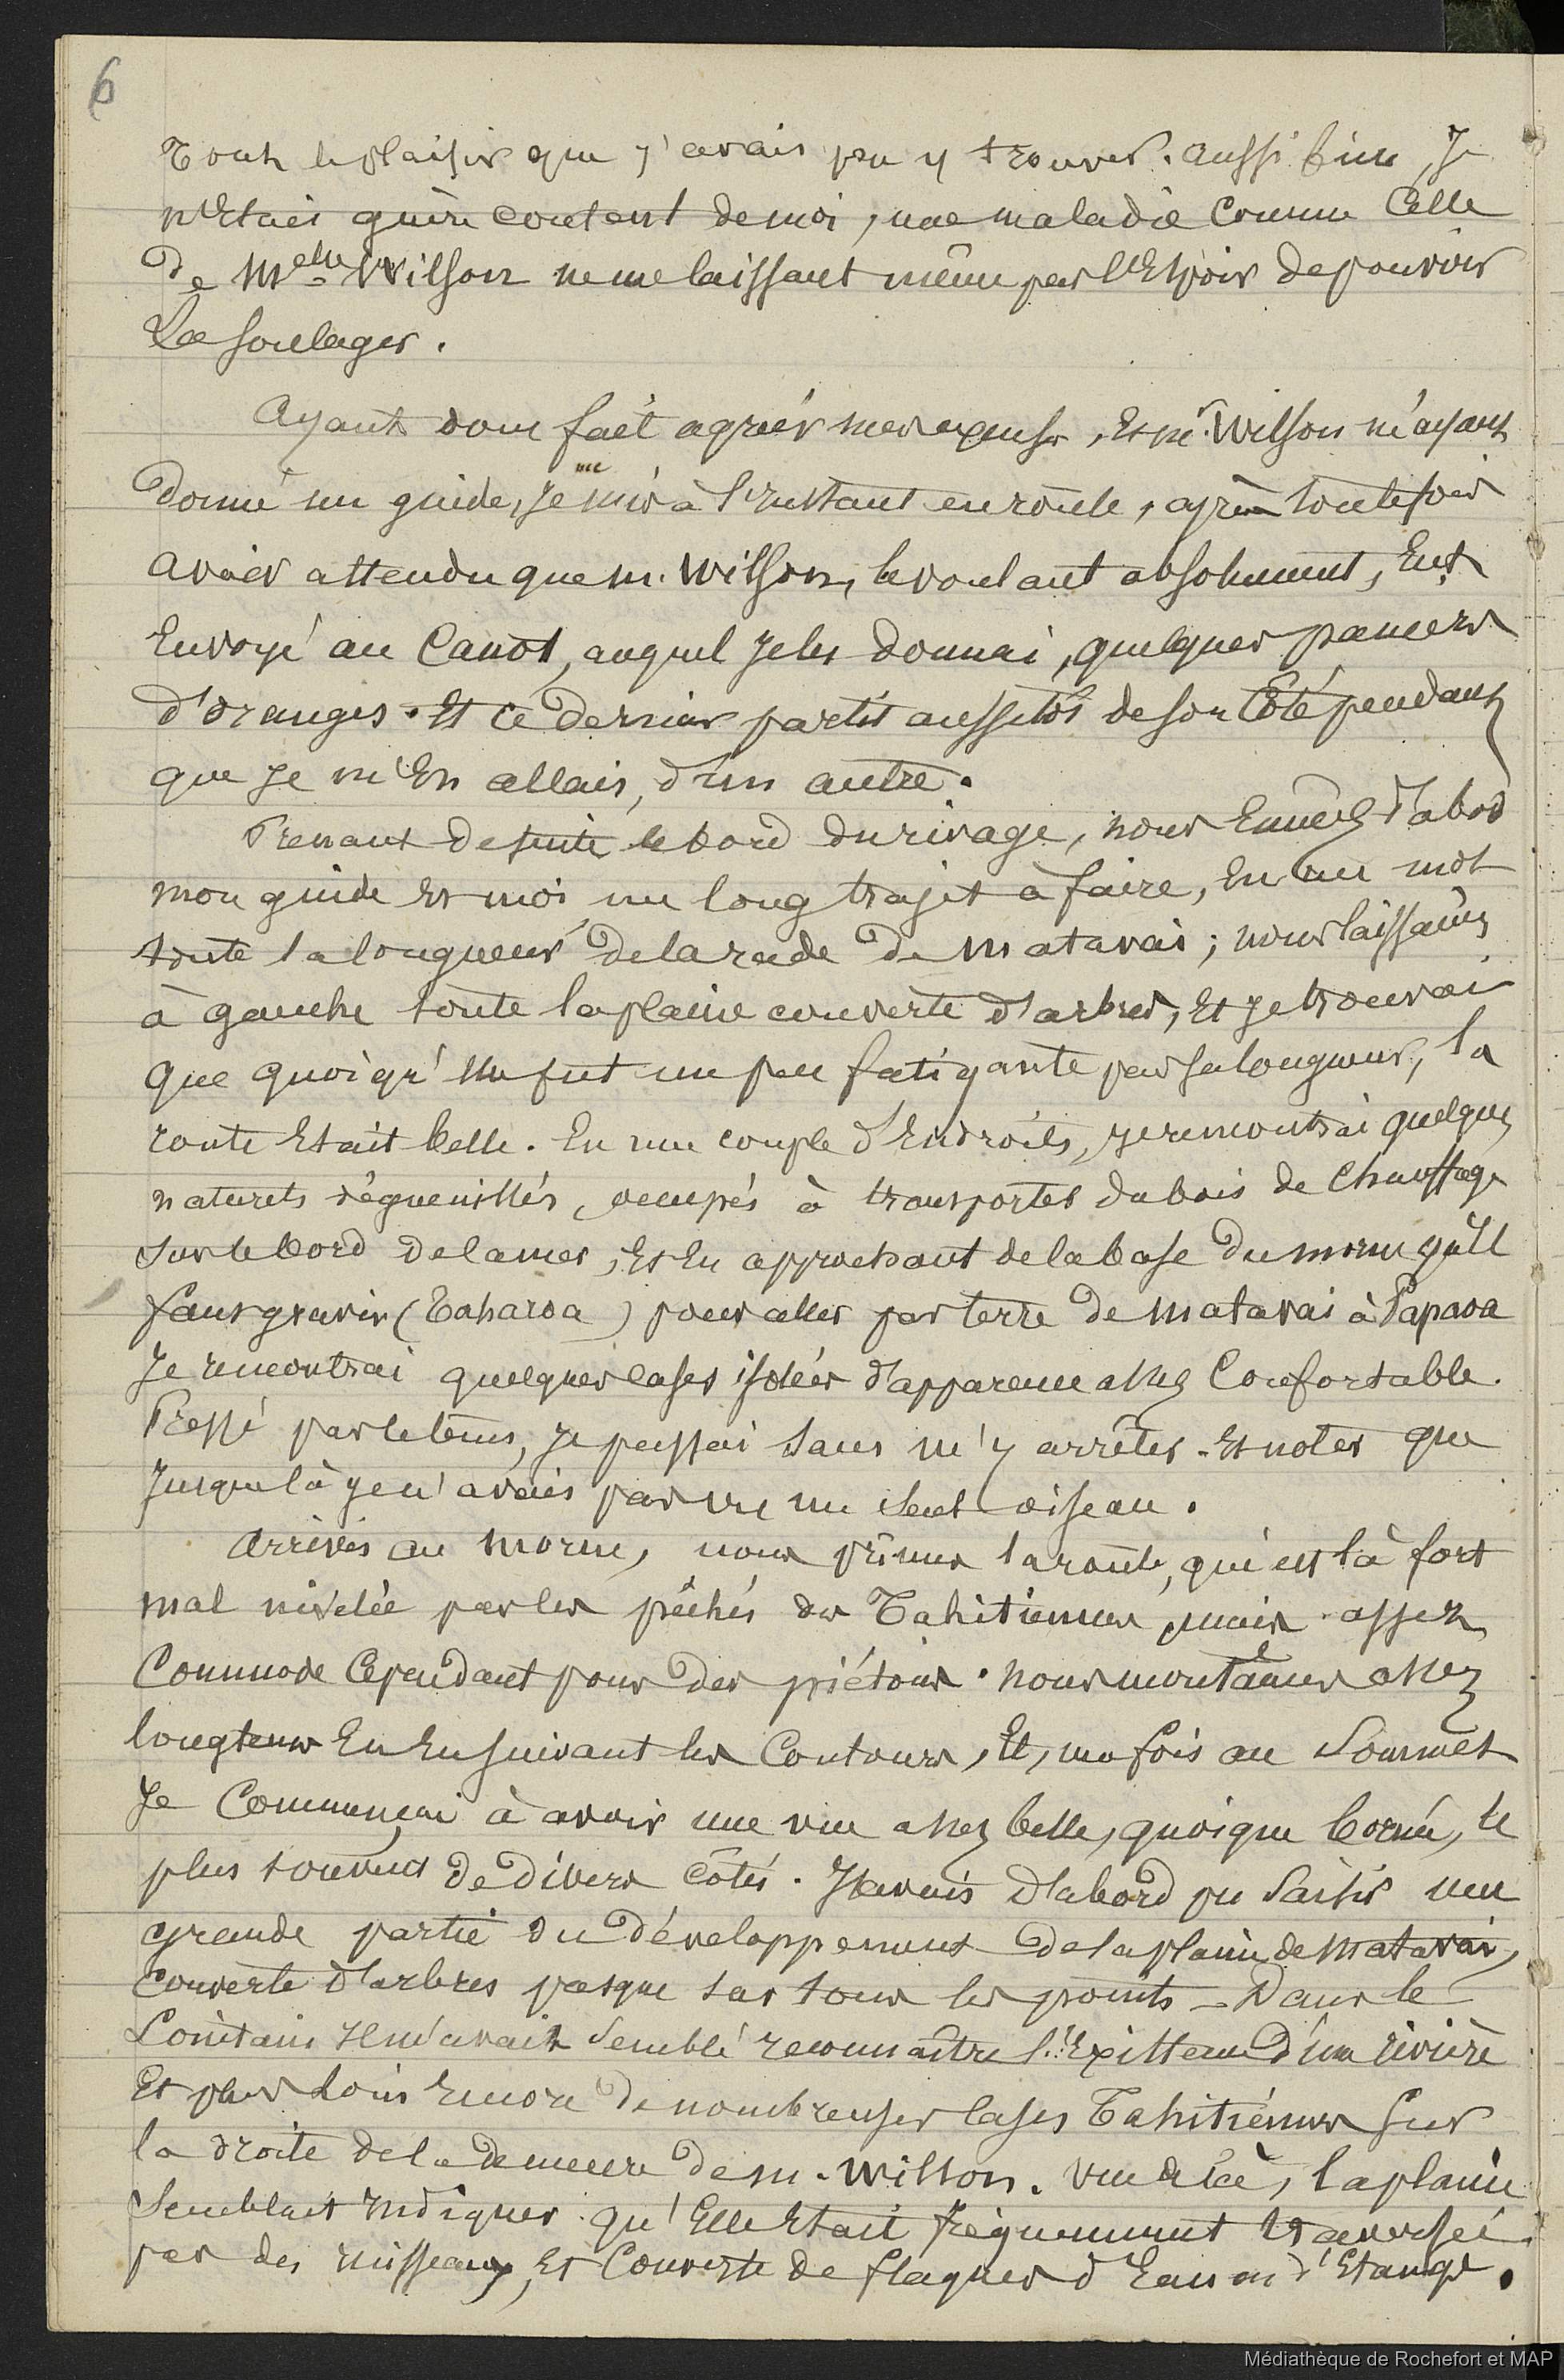 6
tout le plaisir que j'avais pu y trouver. aussi bien, Je
n'Etais guère content de moi, une maladie Comme Celle
de Melle Wilson ne me laissant même pas l'Espoir de pouvoir
La soulager.
Ayant donc fait agréer mes excuses, Et Mr. Wilson m'ayant
donné un guide, Je me mis à l'Instant en route, après toutefois
avoir attendu que m. Wilson, le voulant absolument, Eut
Envoyé au Canot, auquel Je les donnai, quelques paniers
d'oranges. Et ce dernier partit aussitôt de son Côté pendant
que Je m'En allais, d'un autre.
Prenant de suite le bord du rivage, nous Eumes d'abord
mon guide Et moi un long trajet à faire, En un mot
toute la longueur de la rade de Matavai; nous laissâmes
à gauche toute la plaine couverte d'arbres, Et Je trouvai
que quoiqu'Elle fut un peu fatigante par sa longueur, la
route Etait belle. En une couple d'Endroits, Je rencontrai quelques
naturels dégueuillés, occupés à transporter du bois de Chauffage
sur le bord de la mer, Et En approchant de la base du morne qu'Il
faut gravir (Taharoa) pour aller par terre de Matavai à Papaoa
Je rencontrai quelques cases isolées d'apparence assez Confortable.
Pressé par le tems, Je passai sans m'y arrêter. Et noter que
Jusque là Je n'avais pas vu un seul oiseau.
Arrivés au morne, nous prîmes la route, qui est là fort
mal nivelée par les péchés des Tahitiennes, mais assez
Commode Cependant pour des piétons. nous montâmes assez
longtems En En suivant les Contours, Et, ma fois au Sommet
Je Commençai à avoir une vue assez belle, quoique bornée, le
plus souvent de divers côtés. J'avais d'abord pu saisir une
grande partie du développement de la plaine de Matavai,
couverte d'arbres presque sur tous les points – Dans le
Lointain Il m'avait semblé reconnaître l'Existence d'une rivière
Et plus loin Encore de nombreuses cases Tahitiennes sur
la droite de la demeure de m. Wilson. vue de là, la plaine
semblait Indiquer qu'Elle Etait fréquemment traversée
par des ruisseaux, Et Couverte de flaques d'Eau ou d'Etangs.
Médiathèque de Rochefort et MAP